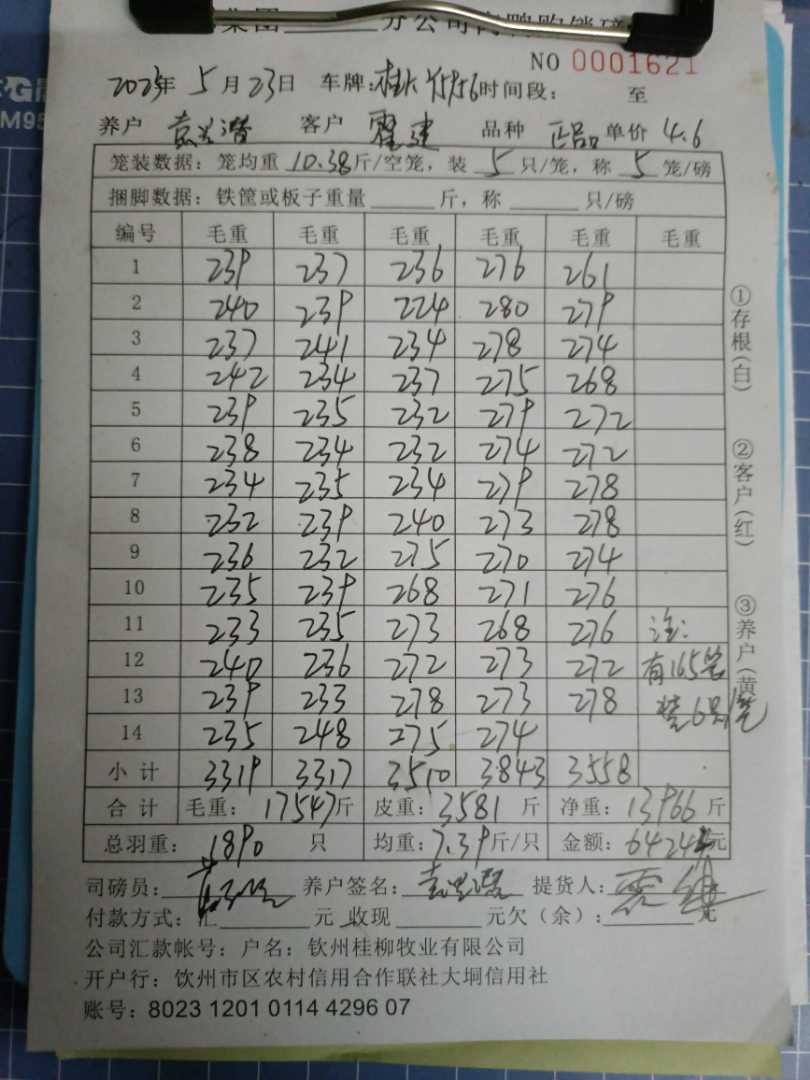 集团______分公司肉鸭购销磅
NO 0001621
2023年 5月23日 车牌: 时间段: 至
养户 客户 霍建 品种 正品 单价 4.6
笼装数据:笼均重 10.38斤/空笼,装 5 只/笼,称 5 笼/磅
捆脚数据:铁筐或板子重量______斤,称______只/磅
编号 毛重 毛重 毛重 毛重 毛重 毛重
1 239 237 236 276 261
2 240 239 224 280 279
3 237 241 234 278 274
4 242 234 237 275 268
5 239 235 232 279 272
6 238 234 232 274 272
7 234 235 234 279 278
8 232 239 240 273 278
9 236 232 275 270 274
10 235 239 268 271 276
11 233 235 273 268 276 注:
12 240 236 272 273 272 有165笼
13 239 233 278 273 278 装6只/笼
14 235 248 275 274
小计 3319 3317 3510 3843 3558
合计 毛重: 17547斤 皮重: 3581 斤 净重: 13966 斤
总羽重: 1890 只 均重: 7.39斤/只 金额: 64244元
司磅员: 养户签名: 提货人:
付款方式:汇______元 收现______元欠(余):______元
公司汇款帐号:户名:钦州桂柳牧业有限公司
开户行:饮州市区农村信用合作联社大垌信用社
账号:8023 1201 0114 4296 07
①存根(白)
②客户(红)
③养户(黄)
M95